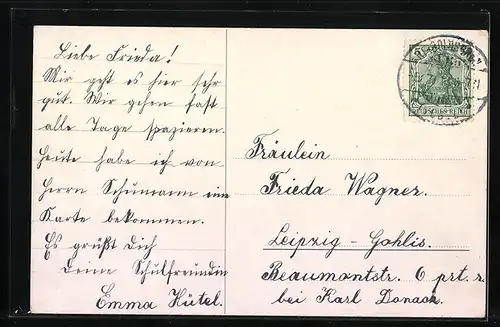 Liebe Frieda!
Mir geht es hier sehr
gut. Wir gehen fast
alle Tage spazieren.
Heute habe ich von
Herrn Schumann eine
Karte bekommen.
Es grüßt Dich
Deine Schulfreundin
Emma Hütel.
Fräulein
Frieda Wagner.
Leipzig-Gohlis.
Beaumontstr. 6 prt. r.
bei Karl